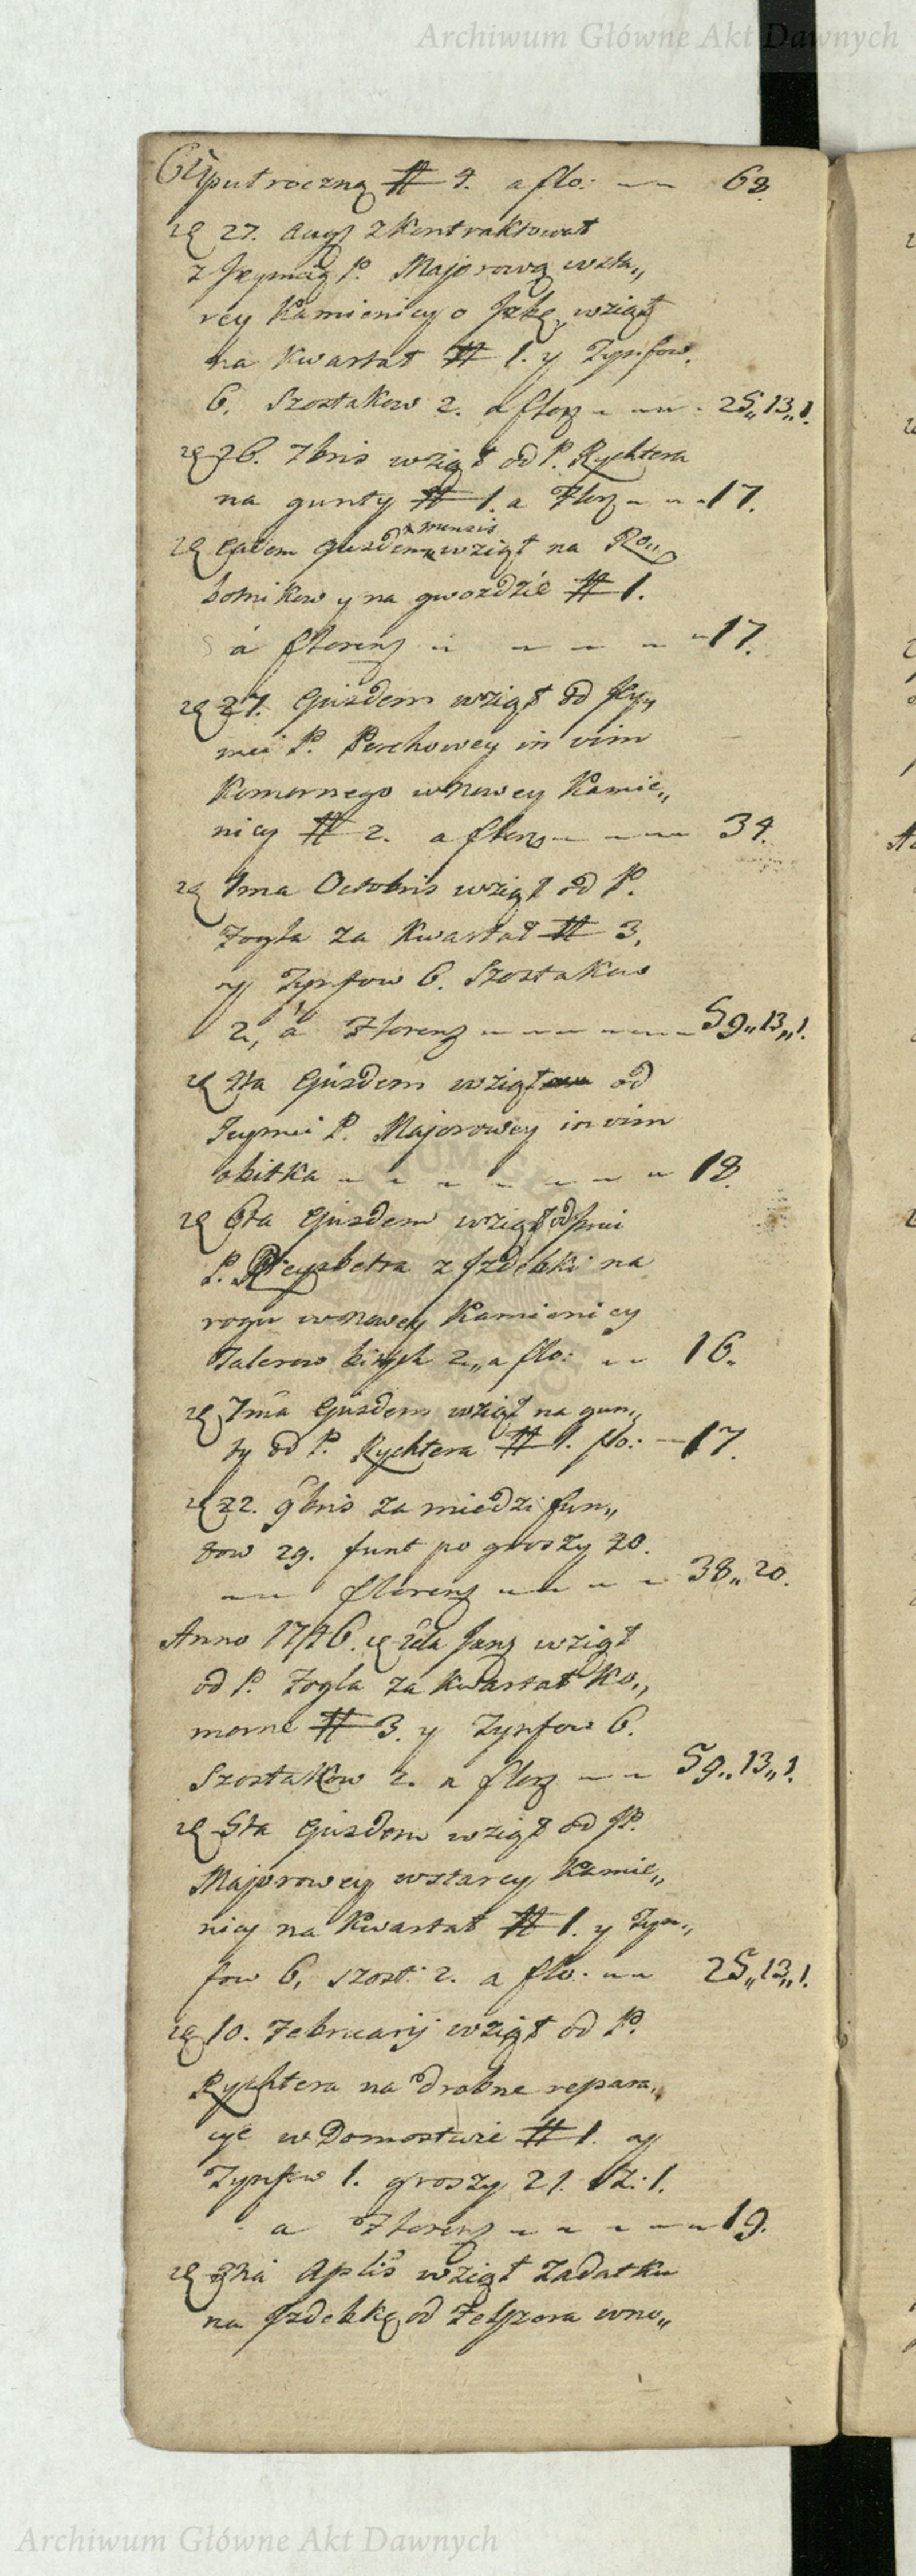 Archiwum Główne Akt Dawnych
64 putroczną # 4. a flo: 68.
27. Augs zkontraktował
z Jeymcią P. Majorową wsta„
rey Kamienicy o Jzbę, wziął
na Kwartał # 1. y Tynfow.
6. Szostakow 2. a florz 25„13„1.
26. 7bris wziął od P. Rychtera
na gunty # 1. a Florz 17.
Eadem ejusdem mensis wziął na Ro„
botnikow y na gwoździe # 1.
á florenz 17.
27. Ejusdem wziął od Jey„
mci P. Porchowey in vim
Komornego w Nowey Kamie„
nicy # 2. a florz 34.
1ma Octobris wziął od P.
Fogla za Kwartał # 3.
y Tynfow 6. Szostakow
2, á Florenz 59„13„1.
Ejusdem wziął od
Jeymci P. Majorowey in vim
obitka 18.
6ta Ejusdem wziął od Jmci
P. z Jzdebki na
rogu w Nowey Kamienicy
Talerow bitych 2„ a flo: 16.
7ma Ejusdem wziął na gun„
ty od P. Rychtera # 1. flo: 17.
22. 9bris za miedzi fun„
tow 29. funt po groszy 40.
florenz 38„20.
Anno 1746. Janz wziął
od P. Fogla za Kwartał Ko„
morne # 3. y Tynfow 6.
Szostakow 2. a florz 59„13„1.
5ta Ejusdem wziął od JP.
Majorowey wstarey Kamie„
nicy na Kwartał # 1. y Tyn„
fow 6, szost: 2. a flo: 25„13„1.
10. Februarij wziął od P.
Rychtera na drobne repara„
cye w Domostwie # 1. y
Tynfow 1. groszy 21. 1.
a Florenz 19.
Aplis wziął zadatku
na Jzdebkę od wno„
Archiwum Główne Akt Dawnych